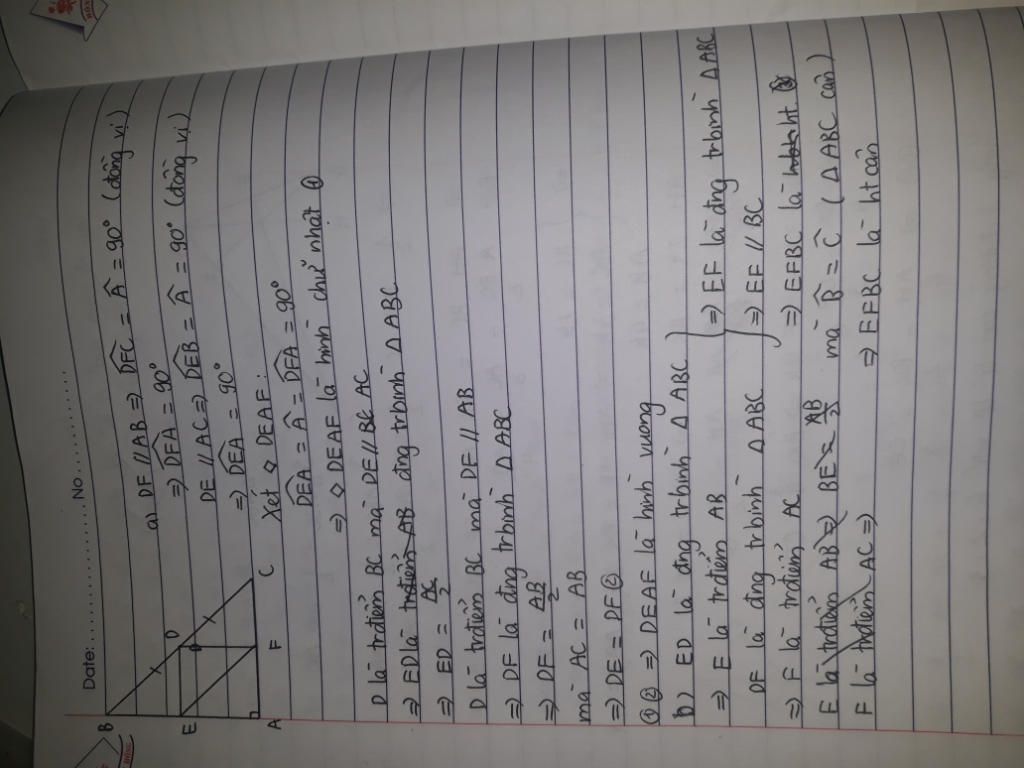 Date: No
B
E
D
A
F
C
a) DF // AB ⇒ DFC = Â = 90° (đồng vị)
⇒ DFA = 90°
DE // AC ⇒ DEB = Â = 90° (đồng vị)
⇒ DEA = 90°
Xét ◇ DEAF :
DEA = Â = DFA = 90°
⇒ ◇ DEAF là hình chữ nhật ①
D là trđiểm BC mà DE // AC
⇒ ED là đng trbình Δ ABC
⇒ ED = AC/2
D là trđiểm BC mà DF // AB
⇒ DF là đng trbình Δ ABC
⇒ DF = AB/2
mà AC = AB
⇒ DE = DF ②
①② ⇒ DEAF là hình vuông
b) ED là đng trbình Δ ABC
⇒ E là trđiểm AB
DF là đng trbình Δ ABC
⇒ F là trđiểm AC
⇒ EF là đng trbình Δ ABC
⇒ EF // BC
⇒ EFBC là ht
E là trđiểm AB ⇒ BE = AB/2
F là trđiểm AC ⇒
mà B̂ = Ĉ (Δ ABC cân)
⇒ EFBC là ht cân